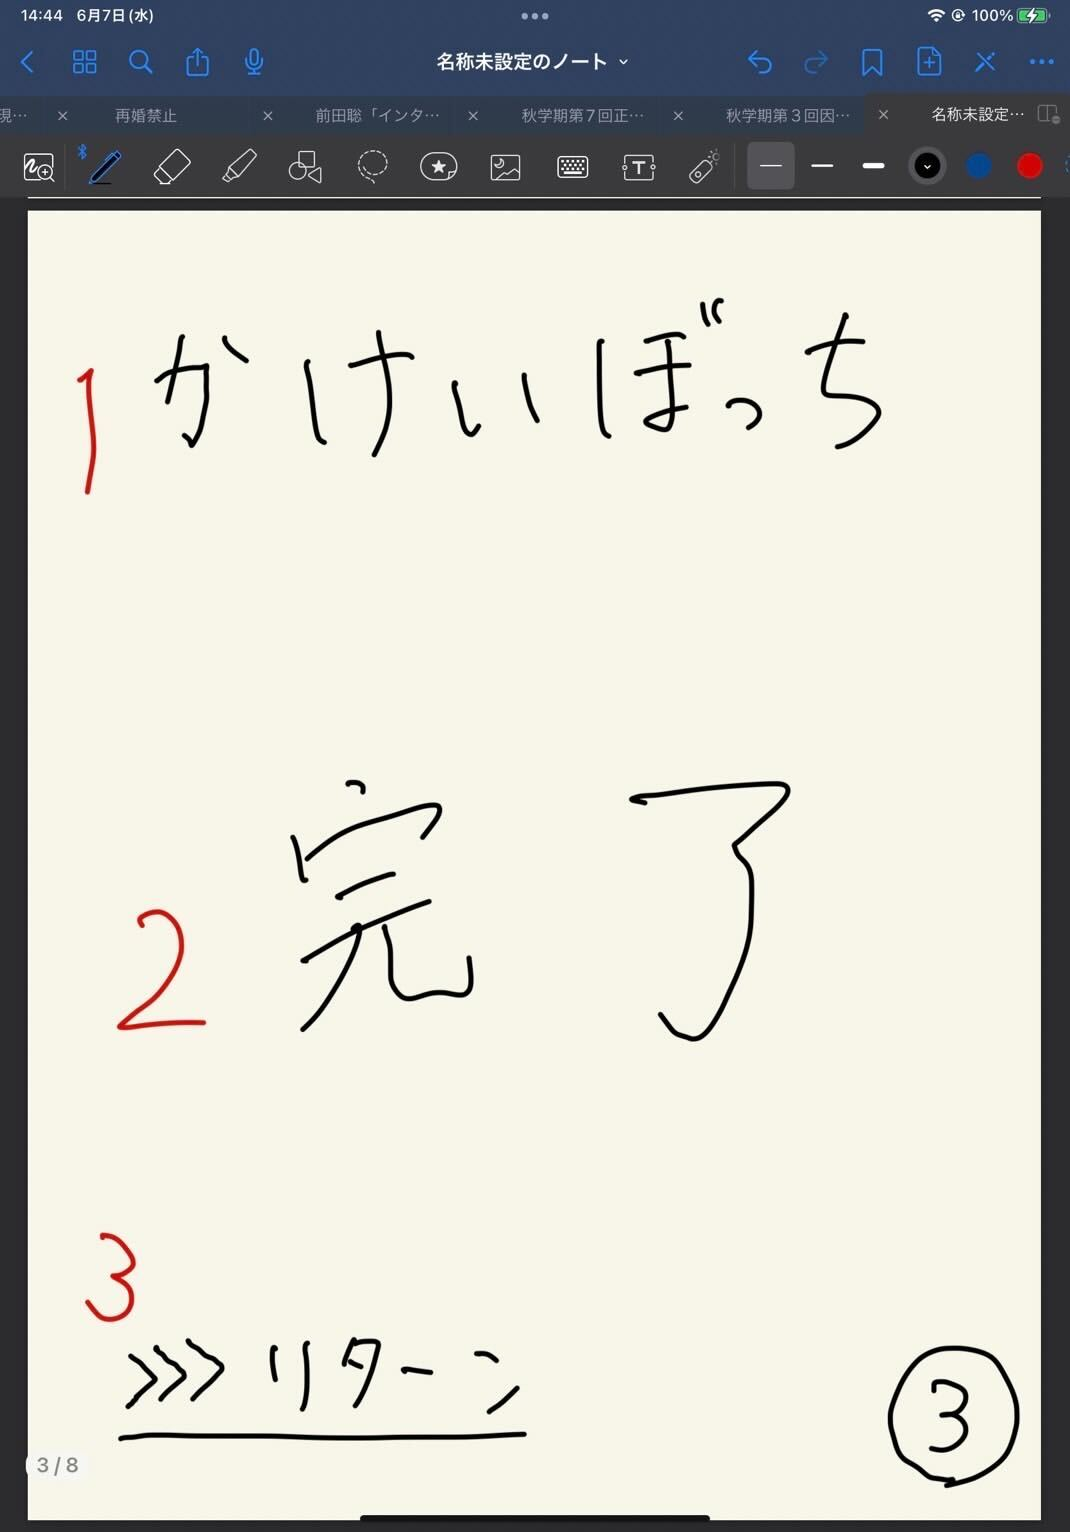 14:44 6月7日(水)
100%
名称未設定のノート
現… 再婚禁止 前田聡「インタ… 秋学期第7回正… 秋学期第3回因… 名称未設定…
1 かけいぼっち
2 完了
3
>>>リターン
3
3 / 8